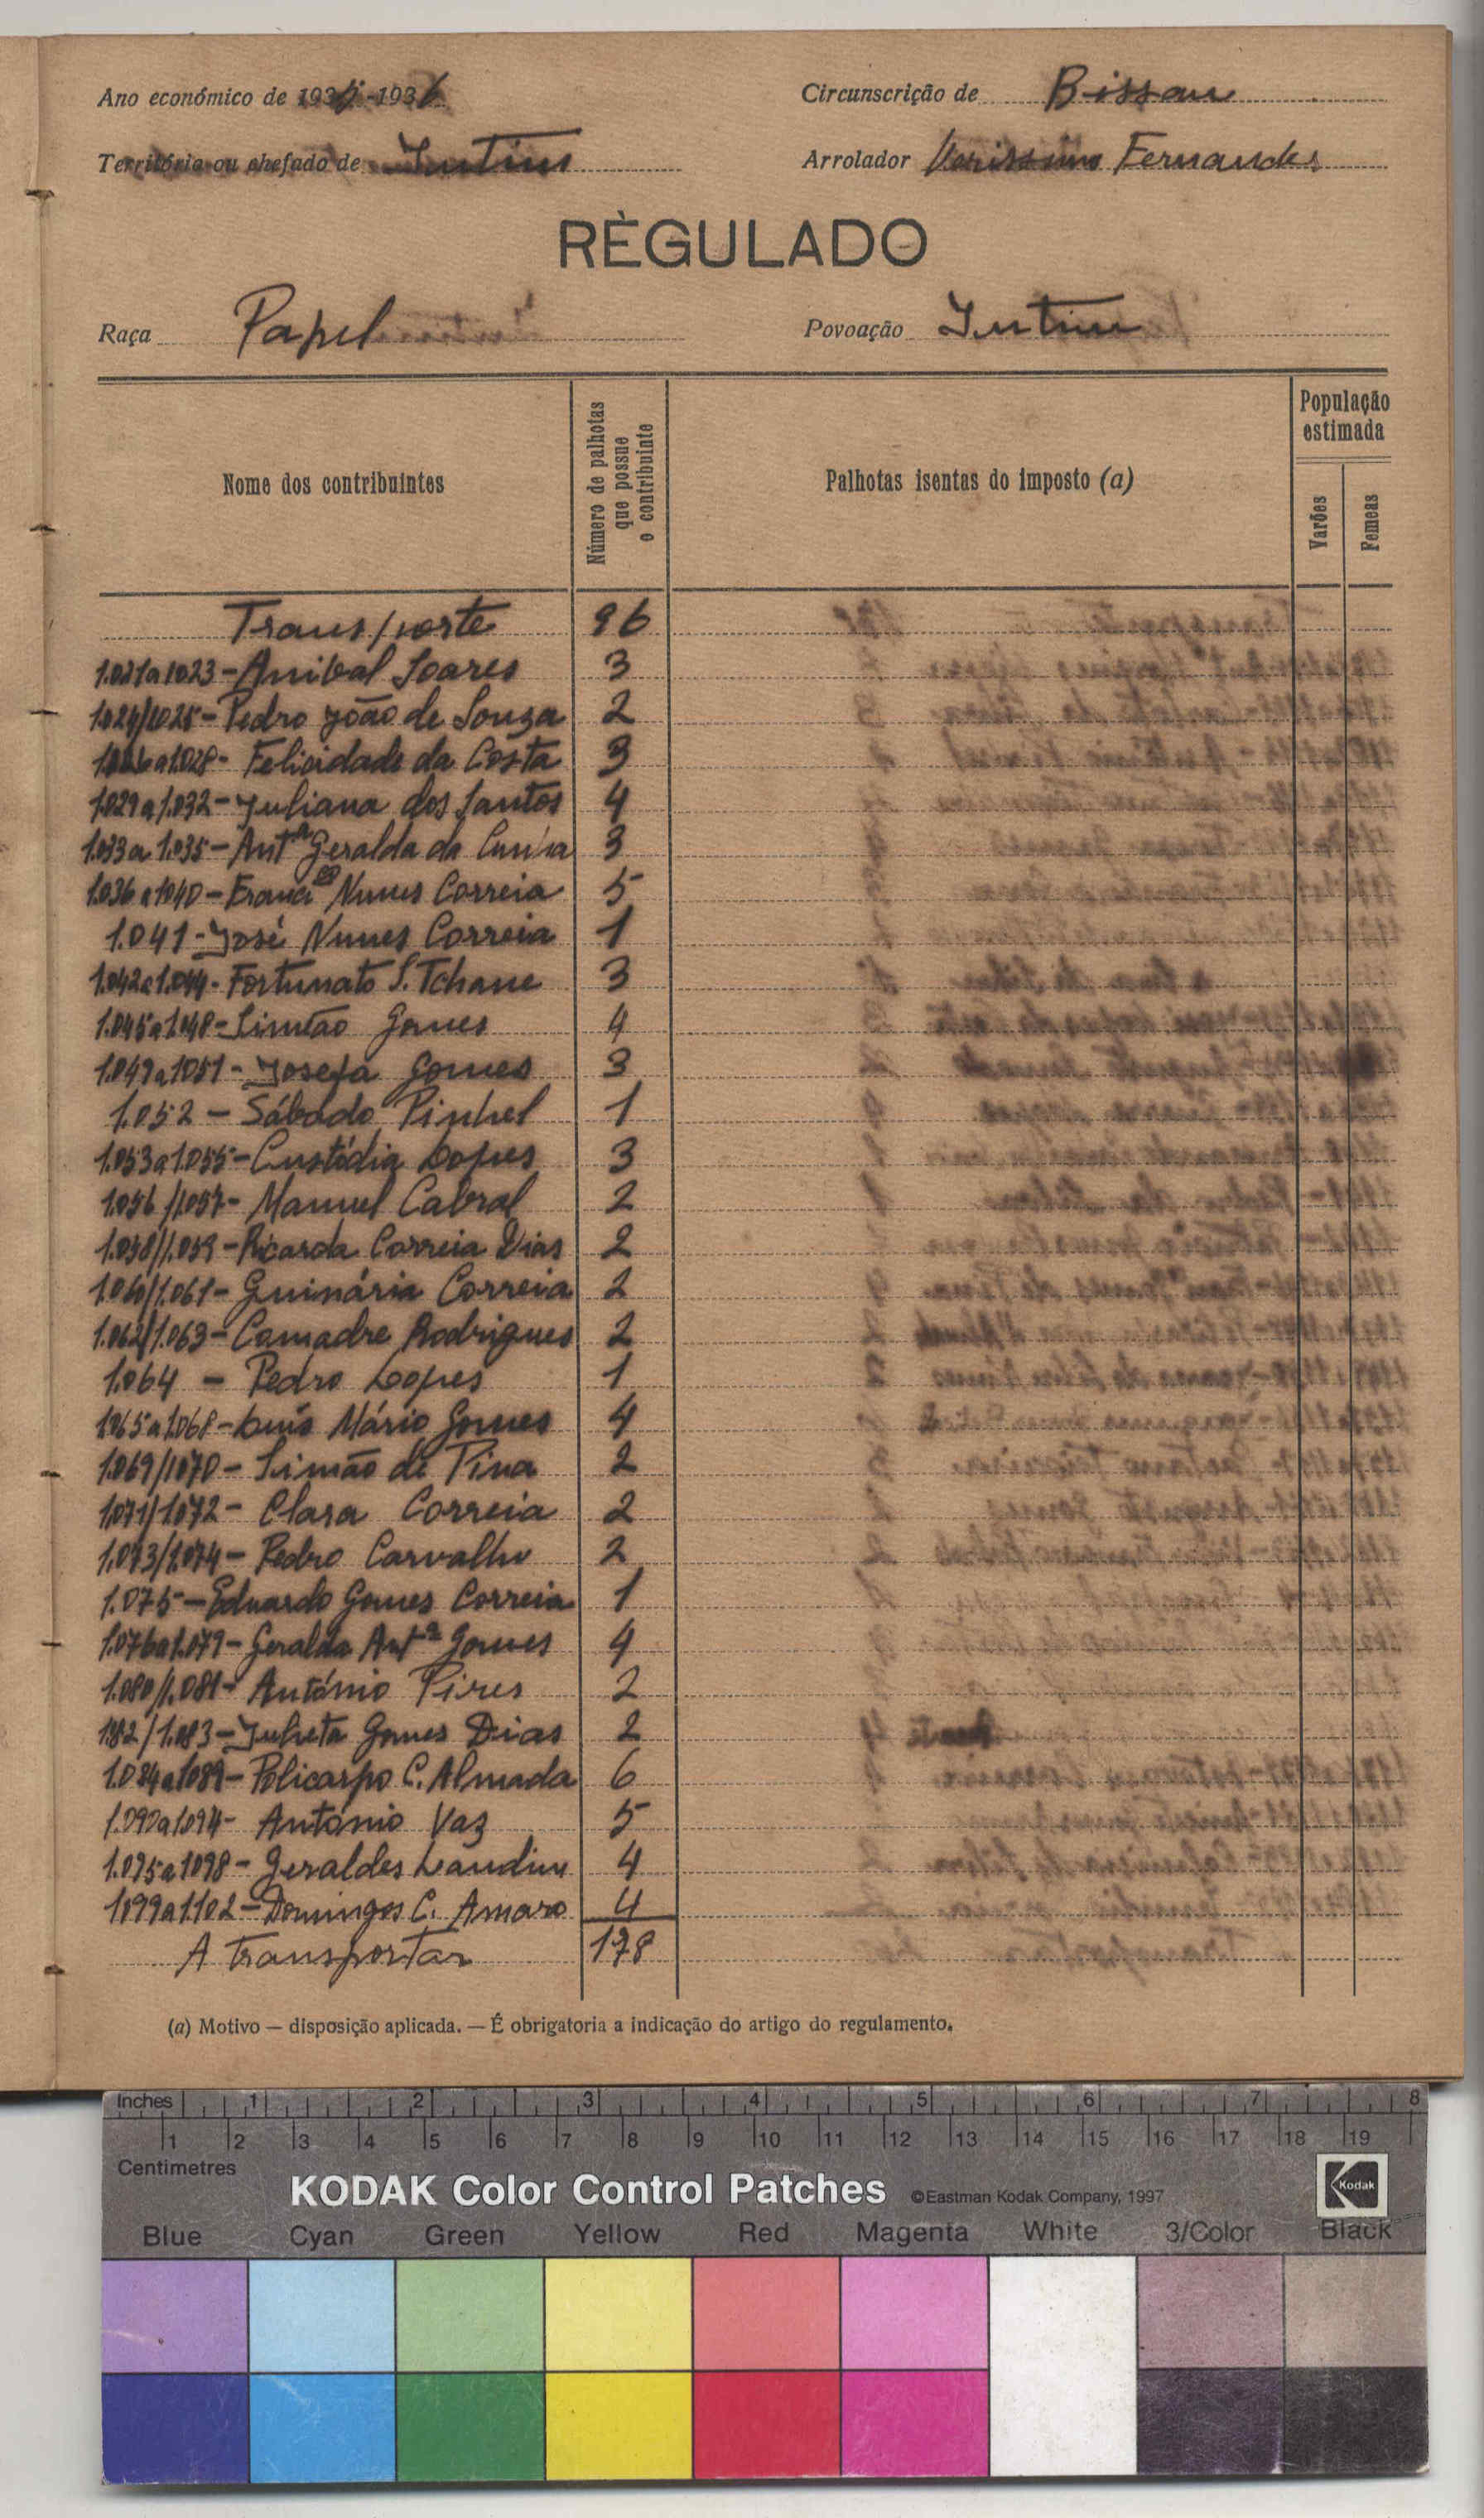 Ano económico de 193 -1936
Circunscrição de Bissau
Território ou chefado de Intim
Arrolador Verissimo Fernandes
RÈGULADO
Raça Papel
Povoação Intim
Nome dos contribuintes
Número de palhotas que possue o contribuinte
Palhotas isentas do imposto (a)
População estimada
Varões
Femeas
Transporte 96
1.021a1023-Anibal Soares 3
1.024/1025-Pedro João de Souza 2
1.026a1.028- Felicidade da Costa 3
1.029a1.032-Juliana dos Santos 4
1.033a1.035-Antª Geralda da Cunha 3
1.036a1040-Francco Nunes Correia 5
1.041-José Nunes Correia 1
1.042a1.044-Fortunato S. Tchane 3
1.045a1.048-Simão Gomes 4
1.049a1051-Josefa Gomes 3
1.052-Sábado Pinhel 1
1.053a1.055-Custódia Lopes 3
1.056/1.057-Manuel Cabral 2
1.058/1.059-Ricarda Correia Dias 2
1.060/1.061-Guinária Correia 2
1.062/1.063-Comadre Rodrigues 2
1.064 - Pedro Lopes 1
1065a1.068-Luís Mário Gomes 4
1.069/1070-Simão de Pina 2
1.071/1.072-Clara Correia 2
1.073/1.074-Pedro Carvalho 2
1.075-Eduardo Gomes Correia 1
1.076a1.079-Geralda Antª Gomes 4
1.080/1.081-António Pires 2
182/1.083-Julieta Gomes Dias 2
1.084a1089-Policarpo C. Almada 6
1.090a1094-António Vaz 5
1.095a1098-Geraldes Landim 4
1099a1102-Domingos C. Amaro 4
A transportar 178
(a) Motivo — disposição aplicada. — É obrigatoria a indicação do artigo do regulamento.
Inches 1 2 3 4 5 6 7 8
1 2 3 4 5 6 7 8 9 10 11 12 13 14 15 16 17 18 19
Centimetres
KODAK Color Control Patches ©Eastman Kodak Company, 1997 Kodak
Blue Cyan Green Yellow Red Magenta White 3/Color Black